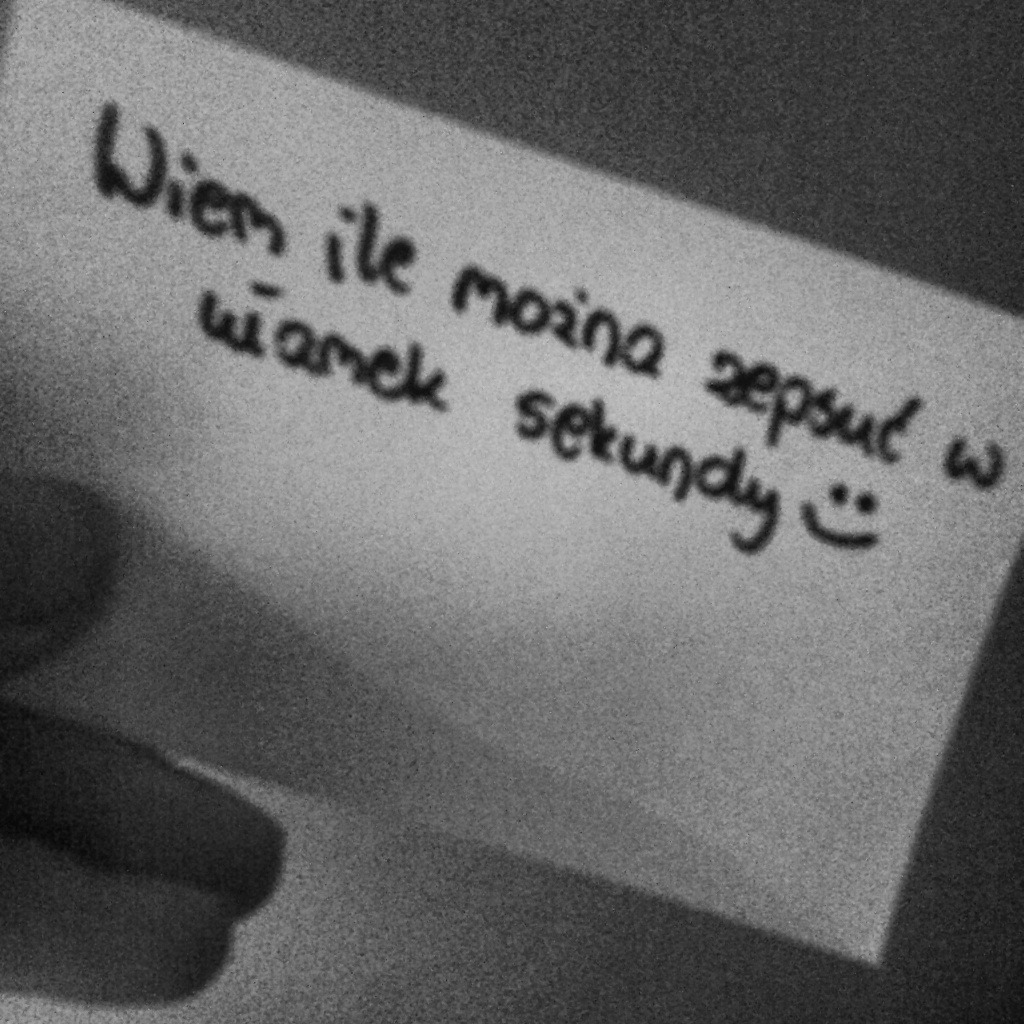 Wiem ile można zepsuć w
ułamek sekundy :)